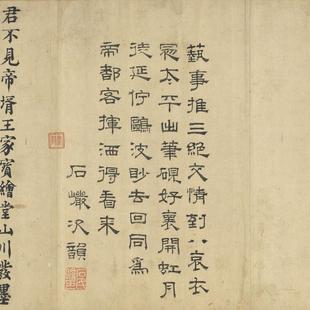 埶事推三絕交情到八哀衣
冠太平出筆硯好褱開虹月
徒延佇鷗波眇去回同爲
帝都客揮洒得看來
石巖次韻
君不見帝壻王家寶繪堂山川發墨